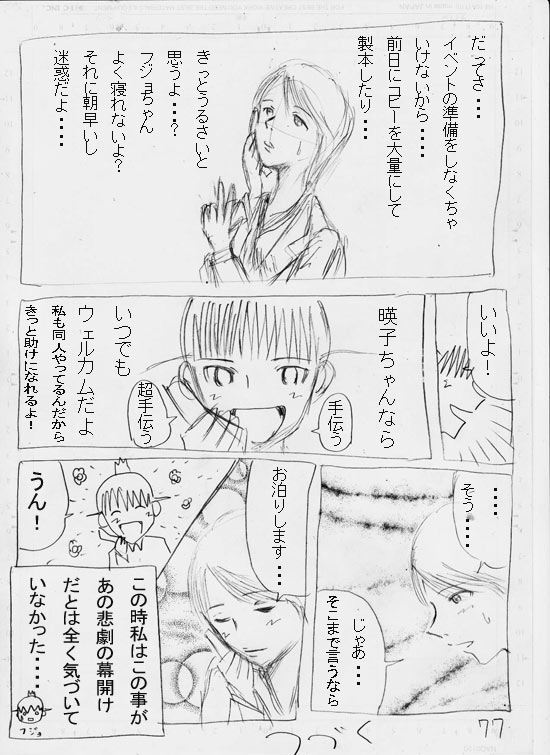 だってさ・・・
イベントの準備をしなくちゃ
いけないから・・・・
前日にコピーを大量にして
製本したり・・・
きっとうるさいと
思うよ・・・？
フジョちゃん
よく寝れないよ？
それに朝早いし
迷惑だよ・・・・
いいよ！
暎子ちゃんなら
手伝う
超手伝う
いつでも
ウェルカムだよ
私も同人やってるんだから
きっと助けになれるよ！
・・・・
そう・・・
じゃあ・・・
そこまで言うなら
お泊りします
・・・
うん！
この時私はこの事が
あの悲劇の幕開け
だとは全く気づいて
いなかった・・・・
フジョ
つづく
77